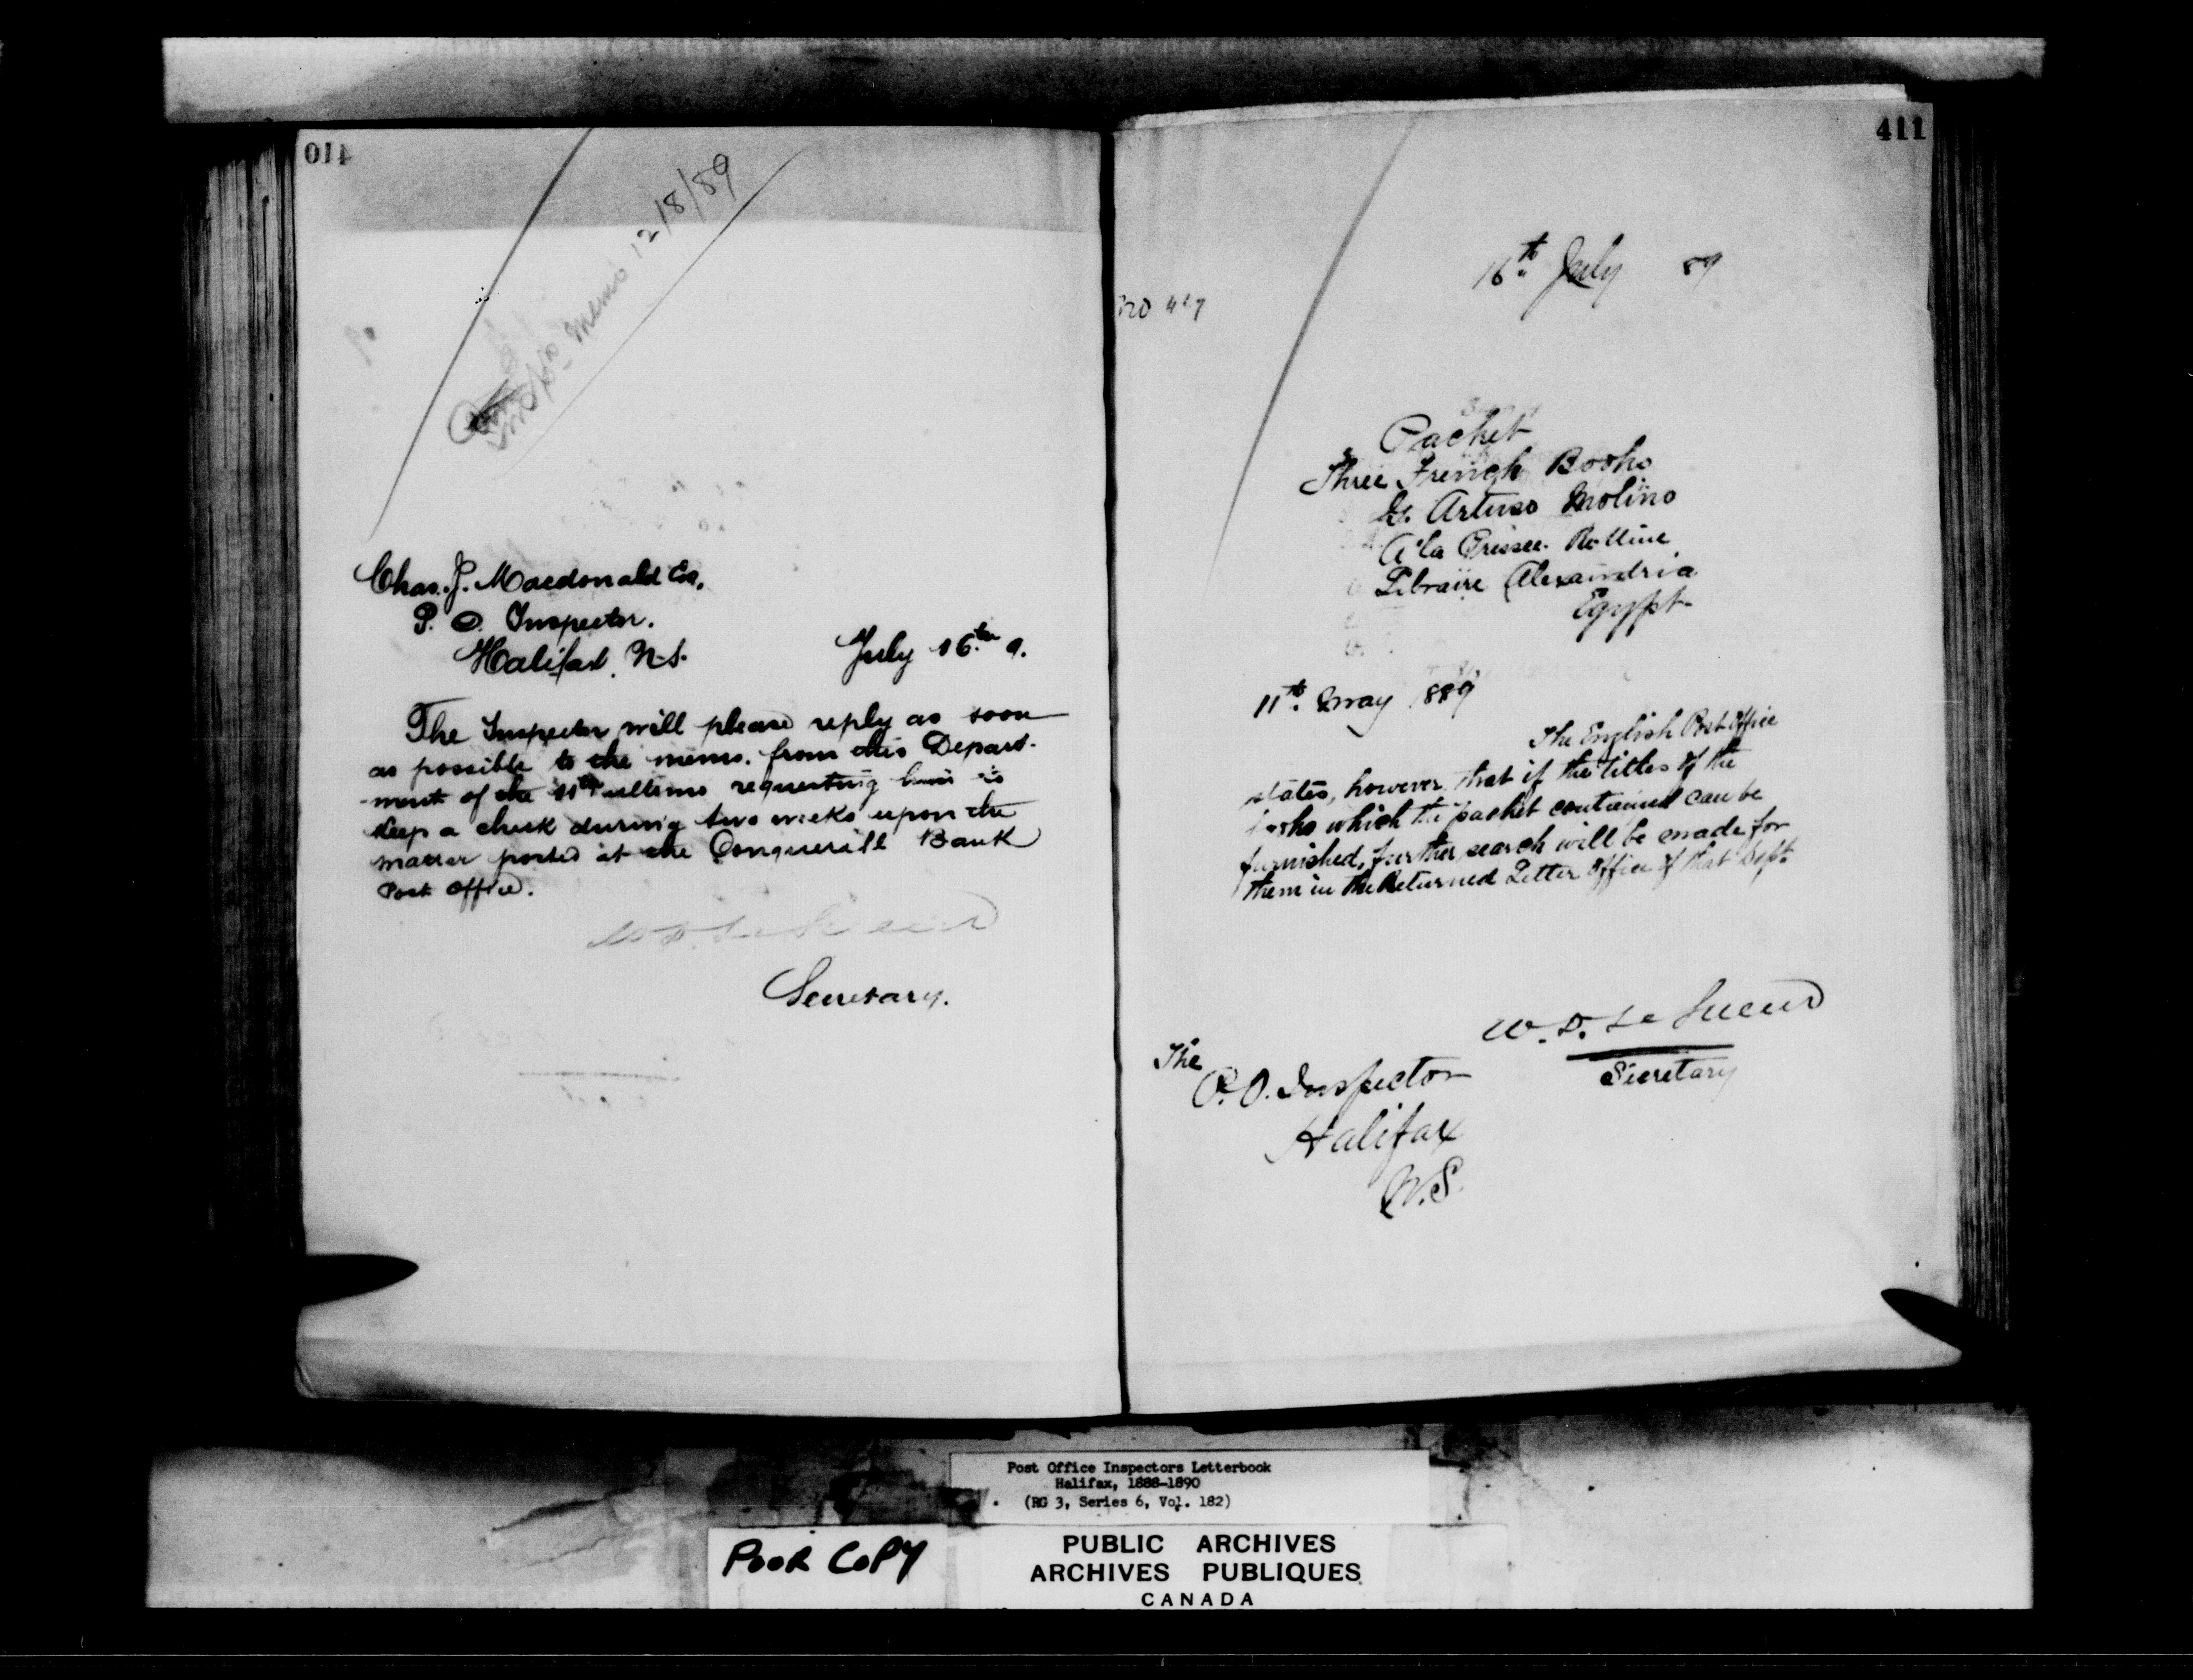 Insp's memo 12/8/89
Chas. J. Macdonald Esq.
P. O. Inspector.
Halifax, N.S.
July 16th 9.
The Inspector will please reply as soon
as possible to the memo. from this Depart-
-ment of the 11th ultimo requesting him to
keep a check during two weeks upon the
matter posted at the Conquerall Bank
Post Office.
W. D. Le Sueur
Secretary.
411
16th July 89
No 427
Packet
Three French Books
Arturo Molino
A la Presse
Libraire Alexandria
Egypt
11th May 1889
The English Post Office
states, however, that if the titles of the
books which the packet contained can be
furnished, further search will be made for
them in the Returned Letter Office of that Dept.
W. D. Le Sueur
Secretary
The
P. O. Inspector
Halifax
N.S.
Post Office Inspectors Letterbook
Halifax, 1888-1890
(RG 3, Series 6, Vol. 182)
POOR COPY
PUBLIC ARCHIVES
ARCHIVES PUBLIQUES
CANADA